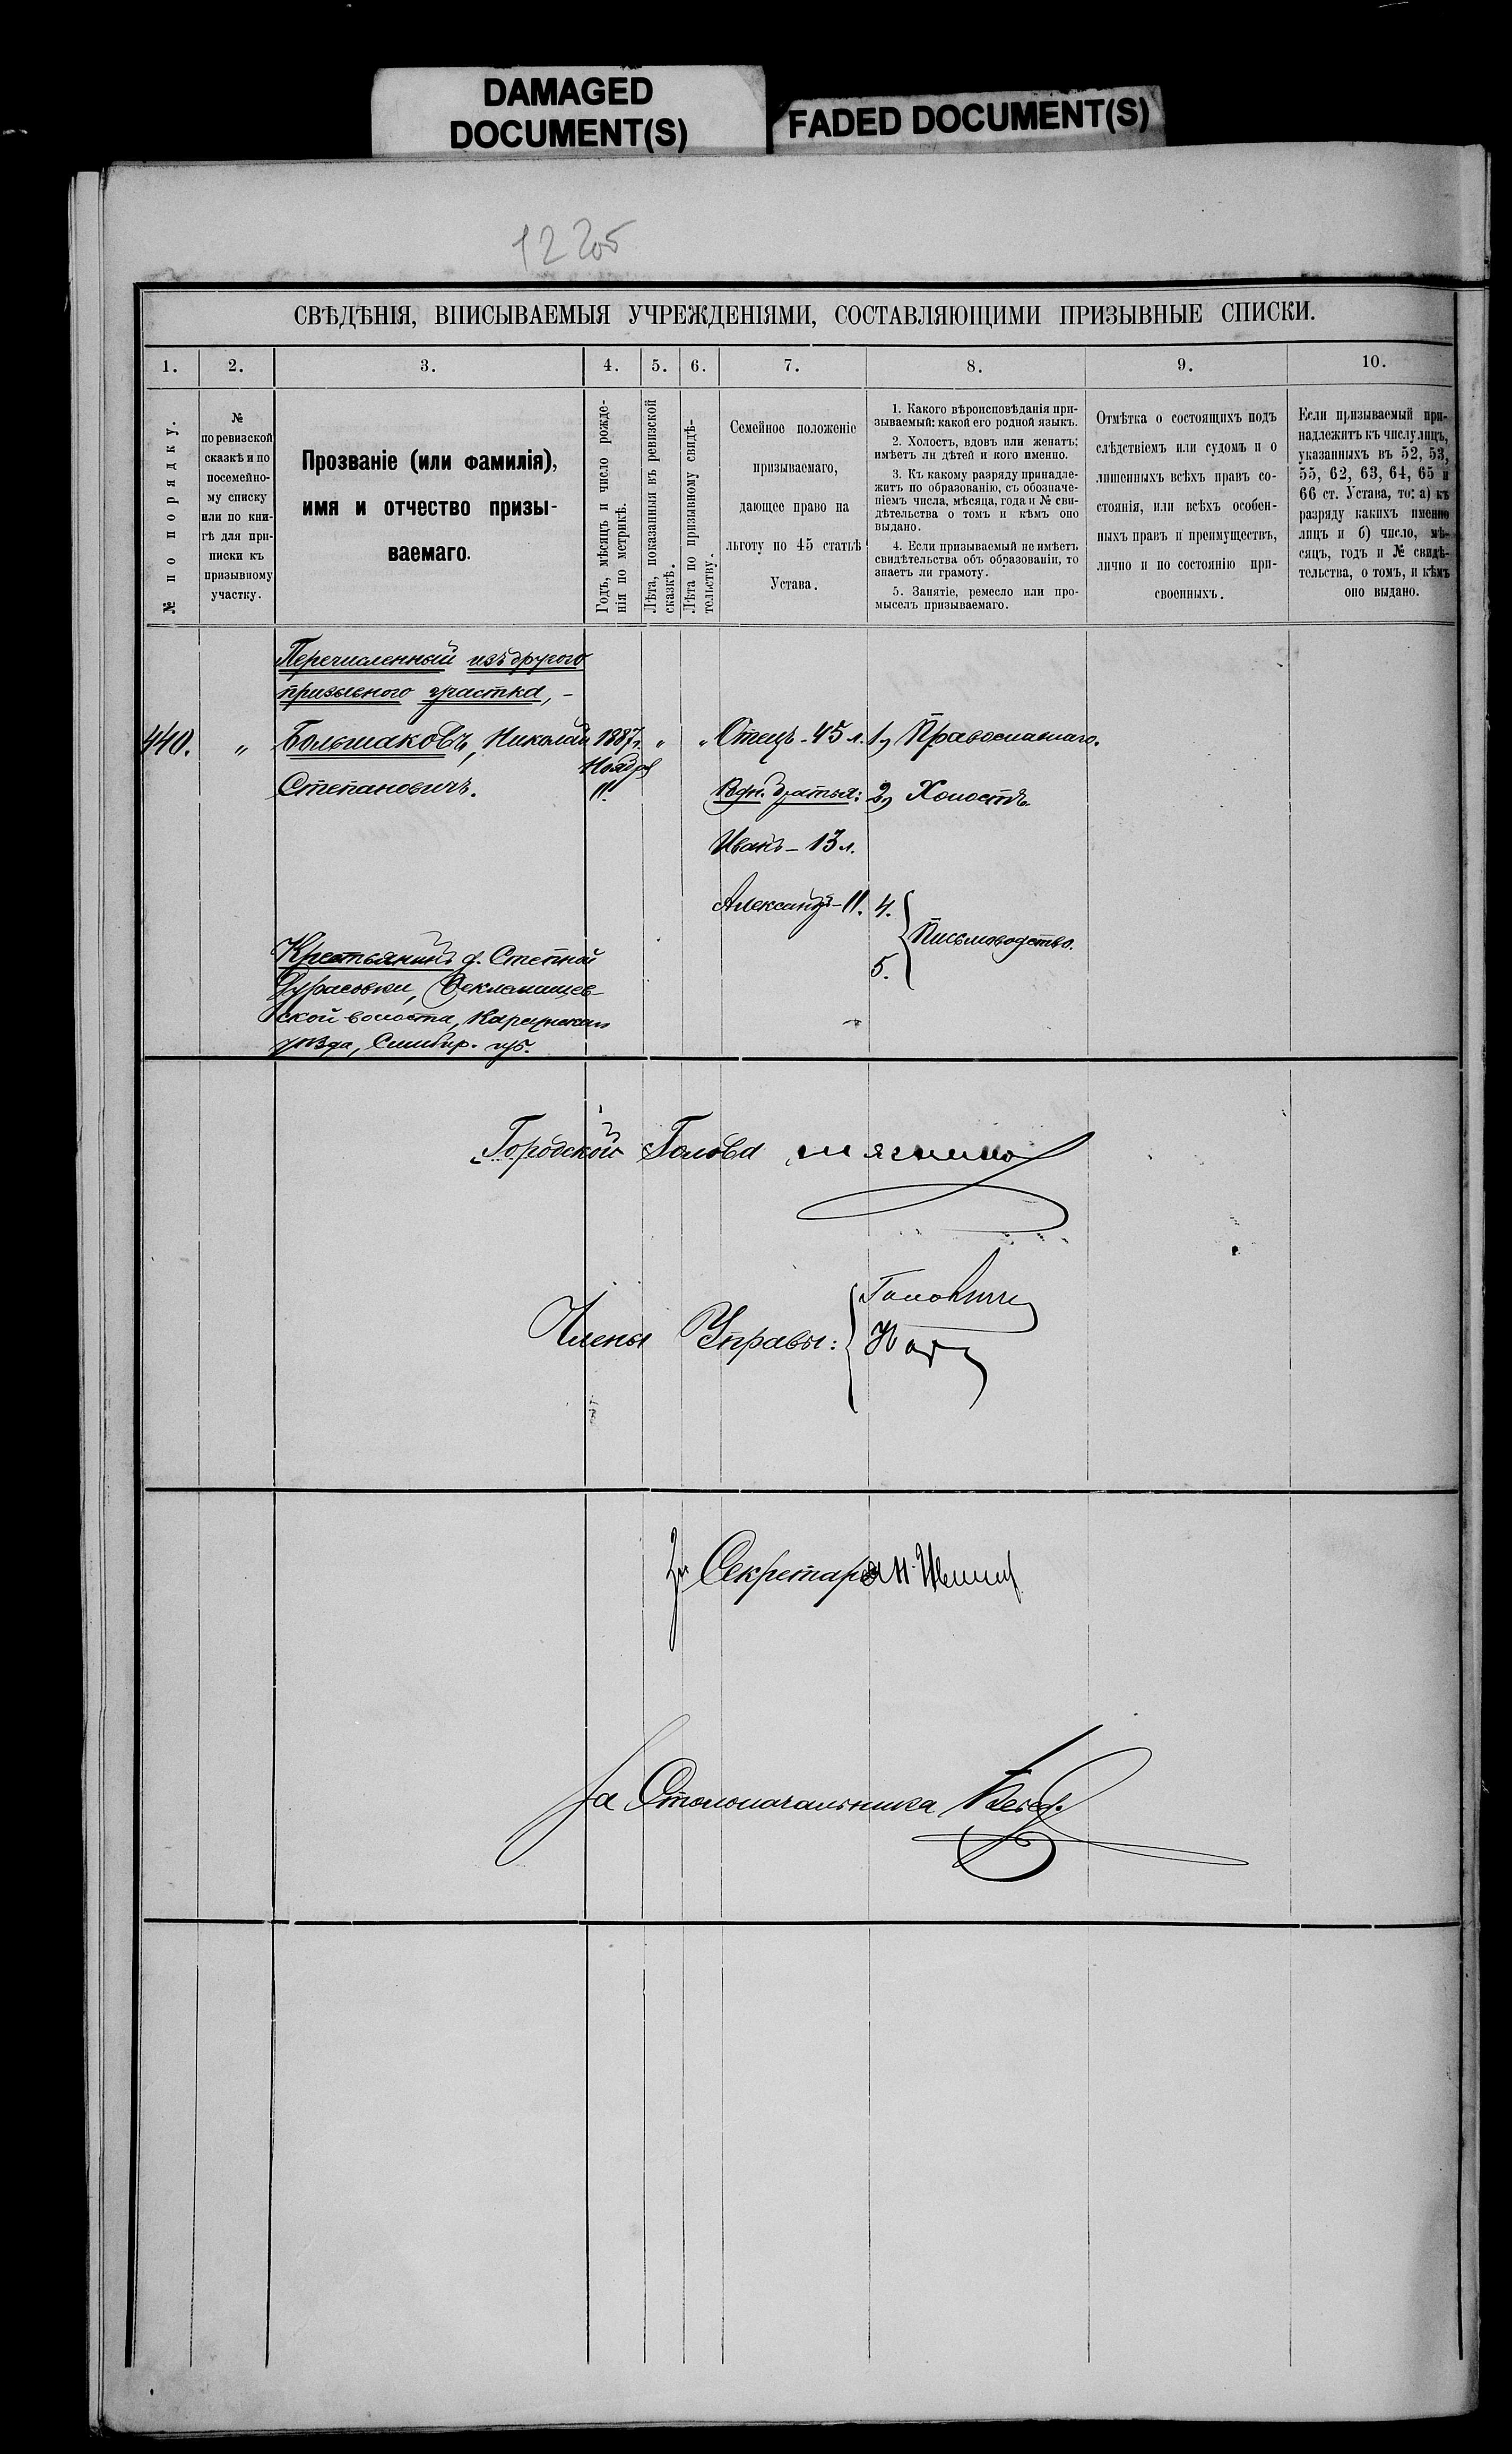 DAMAGED
DOCUMENT(S)
FADED DOCUMENT(S)
12 205
СВѢДѢНІЯ, ВПИСЫВАЕМЫЯ УЧРЕЖДЕНІЯМИ, СОСТАВЛЯЮЩИМИ ПРИЗЫВНЫЕ СПИСКИ.
1. 2. 3. 4. 5. 6. 7. 8. 9. 10.
№ по порядку.
№
по ревизской
сказкѣ и по
посемейно-
му списку
или по кни-
гѣ для при-
писки къ
призывному
участку.
Прозваніе (или фамилія),
имя и отчество призы-
ваемаго.
Годъ, мѣсяцъ и число рожде-
нія по метрикѣ.
Лѣта, показанныя въ ревизской
сказкѣ.
Лѣта по призывному свидѣ-
тельству.
Семейное положеніе
призываемаго,
дающее право на
льготу по 45 статьѣ
Устава.
1. Какого вѣроисповѣданія при-
зываемый: какой его родной языкъ.
2. Холостъ, вдовъ или женатъ:
имѣетъ ли дѣтей и кого именно.
3. Къ какому разряду принадле-
житъ по образованію, съ обозначе-
ніемъ числа, мѣсяца, года и № сви-
дѣтельства о томъ и кѣмъ оно
выдано.
4. Если призываемый не имѣетъ
свидѣтельства объ образованіи, то
знаетъ ли грамоту.
5. Занятіе, ремесло или про-
мыселъ призываемаго.
Отмѣтка о состоящихъ подъ
слѣдствіемъ или судомъ и о
лишенныхъ всѣхъ правъ со-
стоянія, или всѣхъ особен-
ныхъ правъ и преимуществъ,
лично и по состоянію при-
своенныхъ.
Если призываемый при-
надлежитъ къ числу лицъ,
указанныхъ въ 52, 53,
55, 62, 63, 64, 65 и
66 ст. Устава, то: а) къ
разряду какихъ именно
лицъ и б) число, мѣ-
сяцъ, годъ и № свидѣ-
тельства, о томъ, и кѣмъ
оно выдано.
Перечисленный изъ другого
призывного участка, -
440. „ Большаковъ, Николай 1887 г. „ „ Отецъ - 45 л. 1, Православнаго.
Ноября
Степановичъ. 11. Родн. братья: 2, Холостъ.
Иванъ - 13 л.
Александръ - 11. 4.
Письмоводство.
5.
Крестьянинъ д. Степной
Дурасовки,
ской волости, Карсунскаго
уѣзда, Симбир. губ.
Городской Голова
Члены Управы: Головкинъ
За Секретаря
За Столоначальника